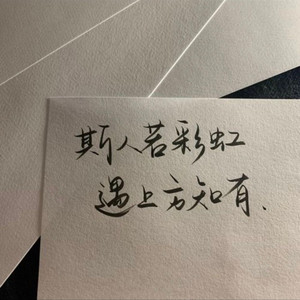 斯人若彩虹
遇上方知有.